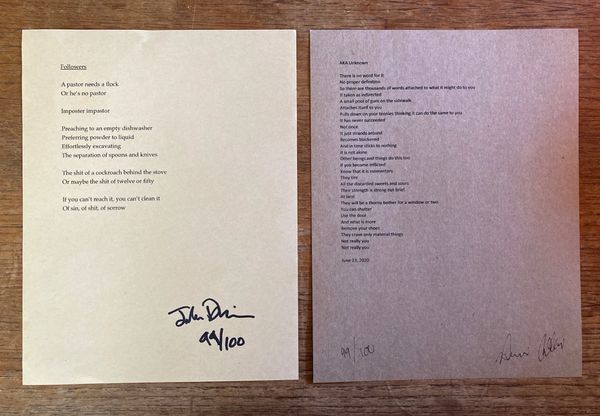 Followers
A pastor needs a flock
Or he's no pastor
Imposter impastor
Preaching to an empty dishwasher
Preferring powder to liquid
Effortlessly excavating
The separation of spoons and knives
The shit of a cockroach behind the stove
Or maybe the shit of twelve or fifty
If you can't reach it, you can't clean it
Of sin, of shit, of sorrow
99/100
AKA Unknown
There is no word for it
No proper definition
So there are thousands of words attached to what it might do to you
If taken as indirected
A small pool of gum on the sidewalk
Attaches itself to you
Pulls down on your tennies thinking it can do the same to you
It has never succeeded
Not once
It just strands around
Becomes blackened
And in time sticks to nothing
It is not alone
Other beings and things do this too
If you become inflicted
Know that it is momentary
They tire
All the discarded sweets and sours
Their strength is strong but brief
At best
They will be a thorny bother for a window or two
You can shutter
Use the door
And what is more
Remove your shoes
They crave only material things
Not really you
Not really you
June 23, 2020
99/100